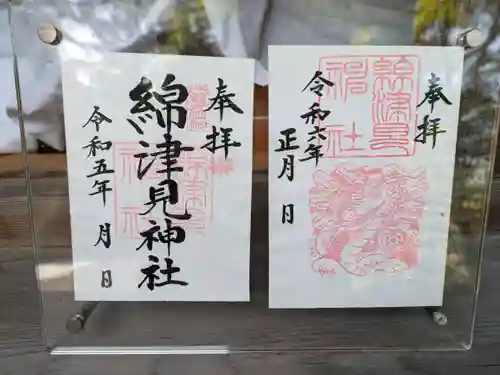 奉拝
綿津見神社
令和五年 月 日
奉拝
綿津見神社
令和六年
正月 日